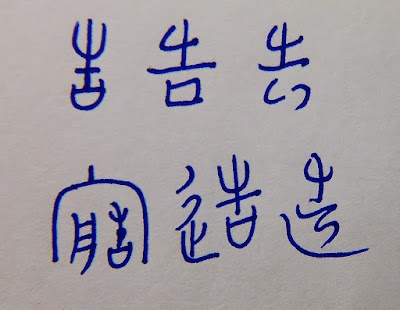 告告告
造造造